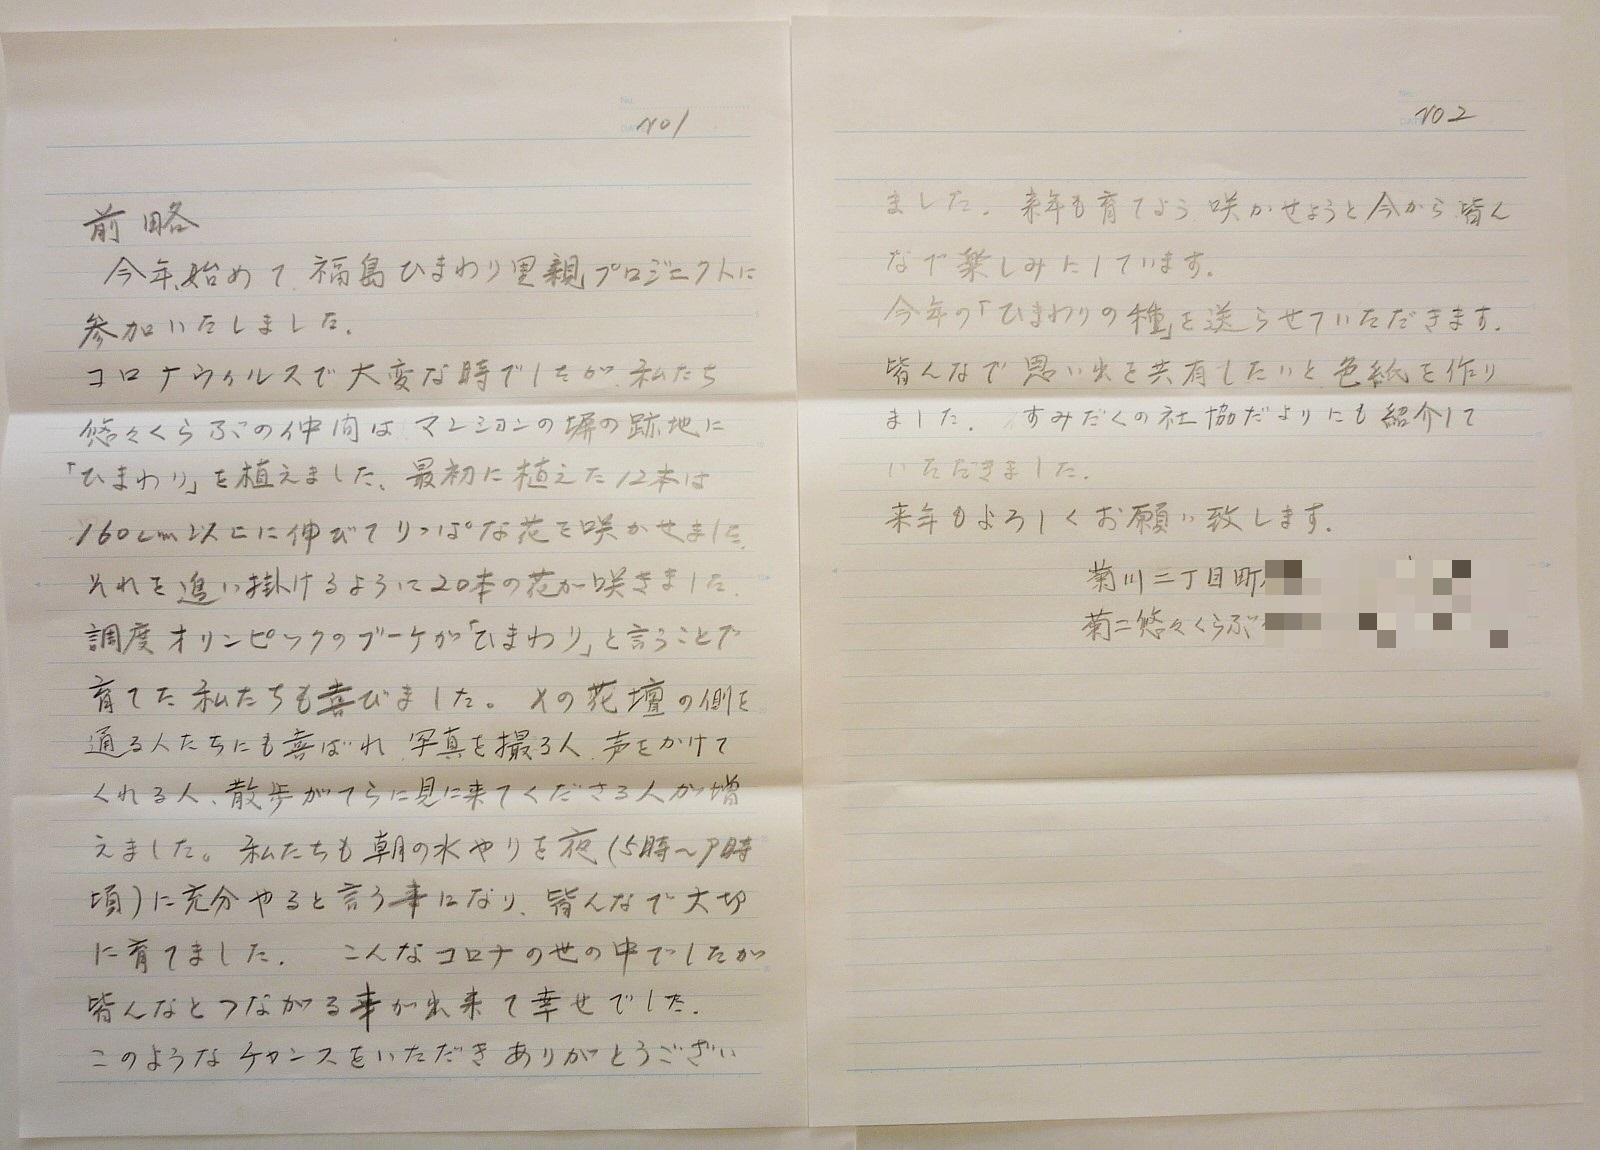 NO1
前略
今年、始めて福島ひまわり里親プロジェクトに
参加いたしました.
コロナウィルスで大変な時でしたが、私たち
悠々くらぶの仲間はマンションの塀の跡地に
「ひまわり」を植えました、最初に植えた12本は
160cm以上に伸びてりっぱな花を咲かせました.
それを追い掛けるように20本の花が咲きました.
調度オリンピックのブーケが「ひまわり」と言うことで
育てた私たちも喜びました。その花壇の側を
通る人たちにも喜ばれ、写真を撮る人、声をかけて
くれる人、散歩がてらに見に来てくださる人が増
えました。私たちも朝の水やりを夜(5時～7時
頃)に充分やると言う事になり、皆んなで大切
に育てました. こんなコロナの世の中でしたが
皆んなとつながる事が出来て幸せでした.
このようなチャンスをいただきありがとうござい
NO2
ました. 来年も育てよう 咲かせようと今から皆ん
なで楽しみにしています.
今年の「ひまわりの種」を送らせていただきます.
皆んなで思い出を共有したいと色紙を作り
ました. すみだくの社協だよりにも紹介して
いただきました.
来年もよろしくお願い致します.
菊川三丁目町
菊二悠々くらぶ